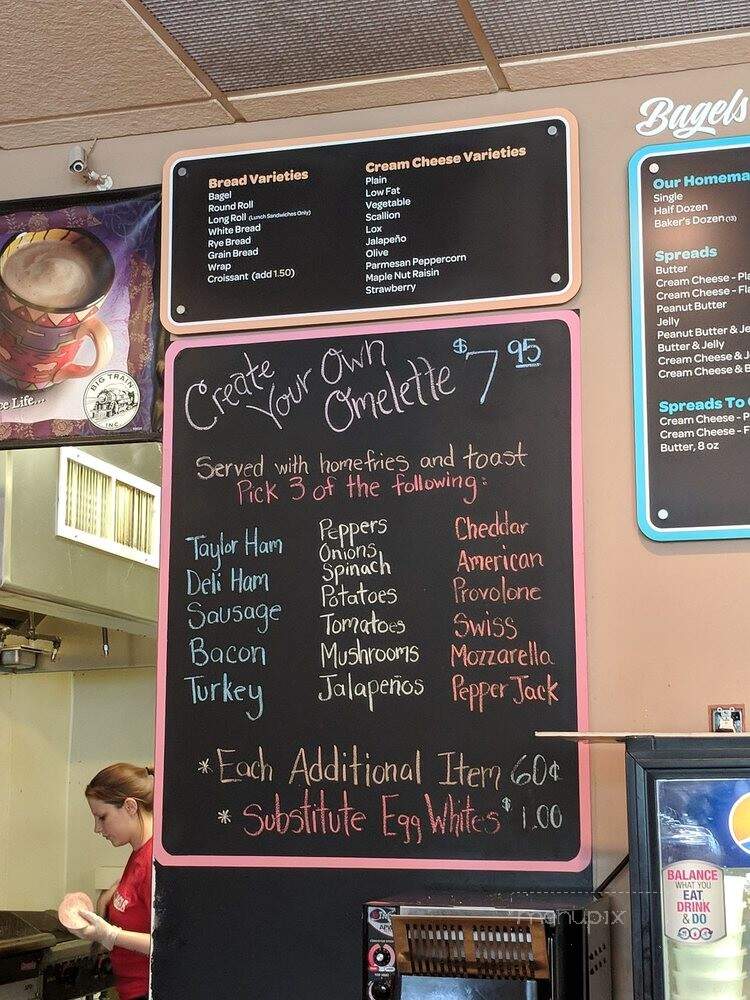 Bread Varieties
Bagel
Round Roll
Long Roll (Lunch Sandwiches Only)
White Bread
Rye Bread
Grain Bread
Wrap
Croissant (add 1.50)
Cream Cheese Varieties
Plain
Low Fat
Vegetable
Scallion
Lox
Jalapeño
Olive
Parmesan Peppercorn
Maple Nut Raisin
Strawberry
Create Your Own Omelette $7.95
Served with homefries and toast
Pick 3 of the following:
Taylor Ham
Deli Ham
Sausage
Bacon
Turkey
Peppers
Onions
Spinach
Potatoes
Tomatoes
Mushrooms
Jalapeños
Cheddar
American
Provolone
Swiss
Mozzarella
Pepper Jack
*Each Additional Item 60¢
* Substitute Egg Whites $1.00
Bagels
Our Homema
Single
Half Dozen
Baker's Dozen (13)
Spreads
Butter
Cream Cheese - Pla
Cream Cheese - Fla
Peanut Butter
Jelly
Peanut Butter & Je
Butter & Jelly
Cream Cheese & J
Cream Cheese & B
Spreads To
Cream Cheese - P
Cream Cheese - F
Butter, 8 oz
ce Life...
BIG TRAIN
INC
BALANCE
WHAT YOU
EAT
DRINK
& DO
menupix